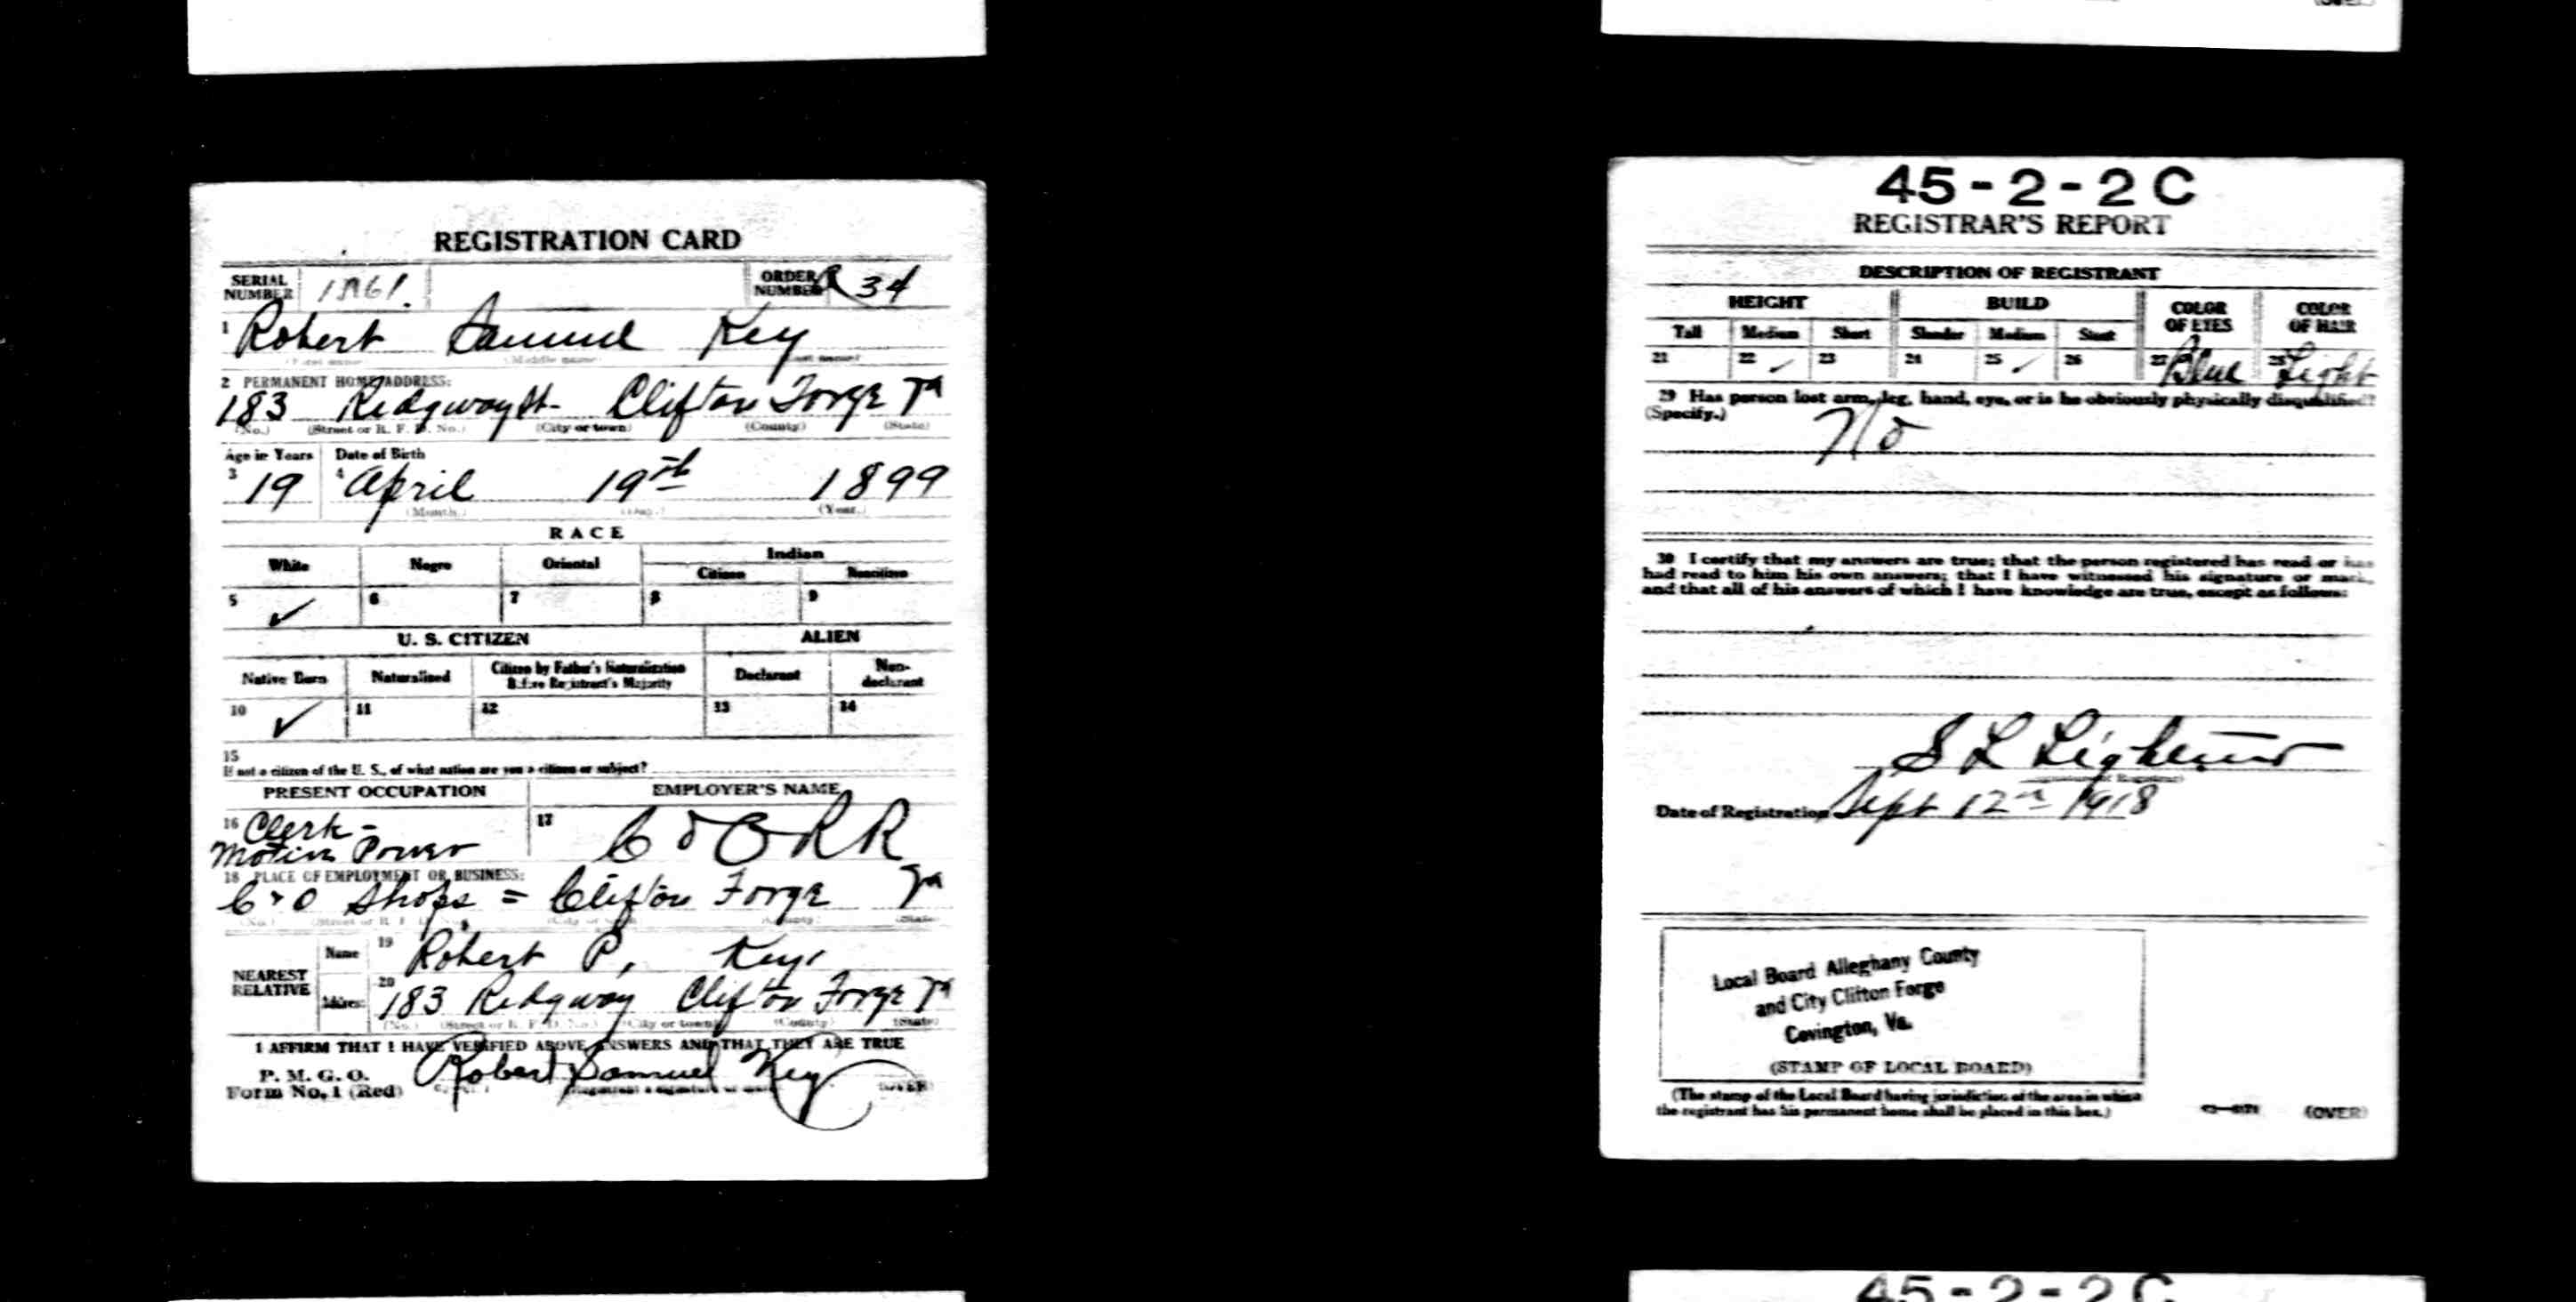 REGISTRATION CARD
SERIAL NUMBER
ORDER NUMBER 34
1 Robert Samuel Key
(First name) (Middle name) (Last name)
2 PERMANENT HOME ADDRESS:
183 Ridgway St Clifton Forge Va
(No.) (Street or R. F. D. No.) (City or town) (County) (State)
Age in Years Date of Birth
3 19 4 April 19th 1899
(Month.) (Day.) (Year.)
RACE
White Negro Oriental Indian
Citizen Noncitizen
5 ✓ 6 7 8 9
U. S. CITIZEN ALIEN
Native Born Naturalized Citizen by Father's Naturalization Before Registrant's Majority Declarant Non-declarant
10 ✓ 11 12 13 14
15
If not a citizen of the U. S., of what nation are you a citizen or subject?
PRESENT OCCUPATION EMPLOYER'S NAME
16 Clerk - 17 C & O R R
Motive Power
18 PLACE OF EMPLOYMENT OR BUSINESS:
C & O Shops = Clifton Forge Va
(No.) (Street or R. F. D. No.) (City or town) (County) (State)
NEAREST RELATIVE
Name 19 Robert P. Key
Address 20 183 Ridgway Clifton Forge Va
(No.) (Street or R. F. D. No.) (City or town) (County) (State)
I AFFIRM THAT I HAVE VERIFIED ABOVE ANSWERS AND THAT THEY ARE TRUE
P. M. G. O.
Form No. 1 (Red) Robert Samuel Key (OVER)
45-2-2 C
REGISTRAR'S REPORT
DESCRIPTION OF REGISTRANT
HEIGHT BUILD COLOR OF EYES COLOR OF HAIR
Tall Medium Short Slender Medium Stout
21 22 ✓ 23 24 25 ✓ 26 27 Blue 28 Light
29 Has person lost arm, leg, hand, eye, or is he obviously physically disqualified?
(Specify.)
No
30 I certify that my answers are true; that the person registered has read or has
had read to him his own answers; that I have witnessed his signature or mark,
and that all of his answers of which I have knowledge are true, except as follows:
S L
(Signature of Registrar)
Date of Registration Sept 12th 1918
Local Board Alleghany County
and City Clifton Forge
Covington, Va.
(STAMP OF LOCAL BOARD)
(The stamp of the Local Board having jurisdiction of the area in which
the registrant has his permanent home shall be placed in this box.)
(OVER)
45-2-2 C